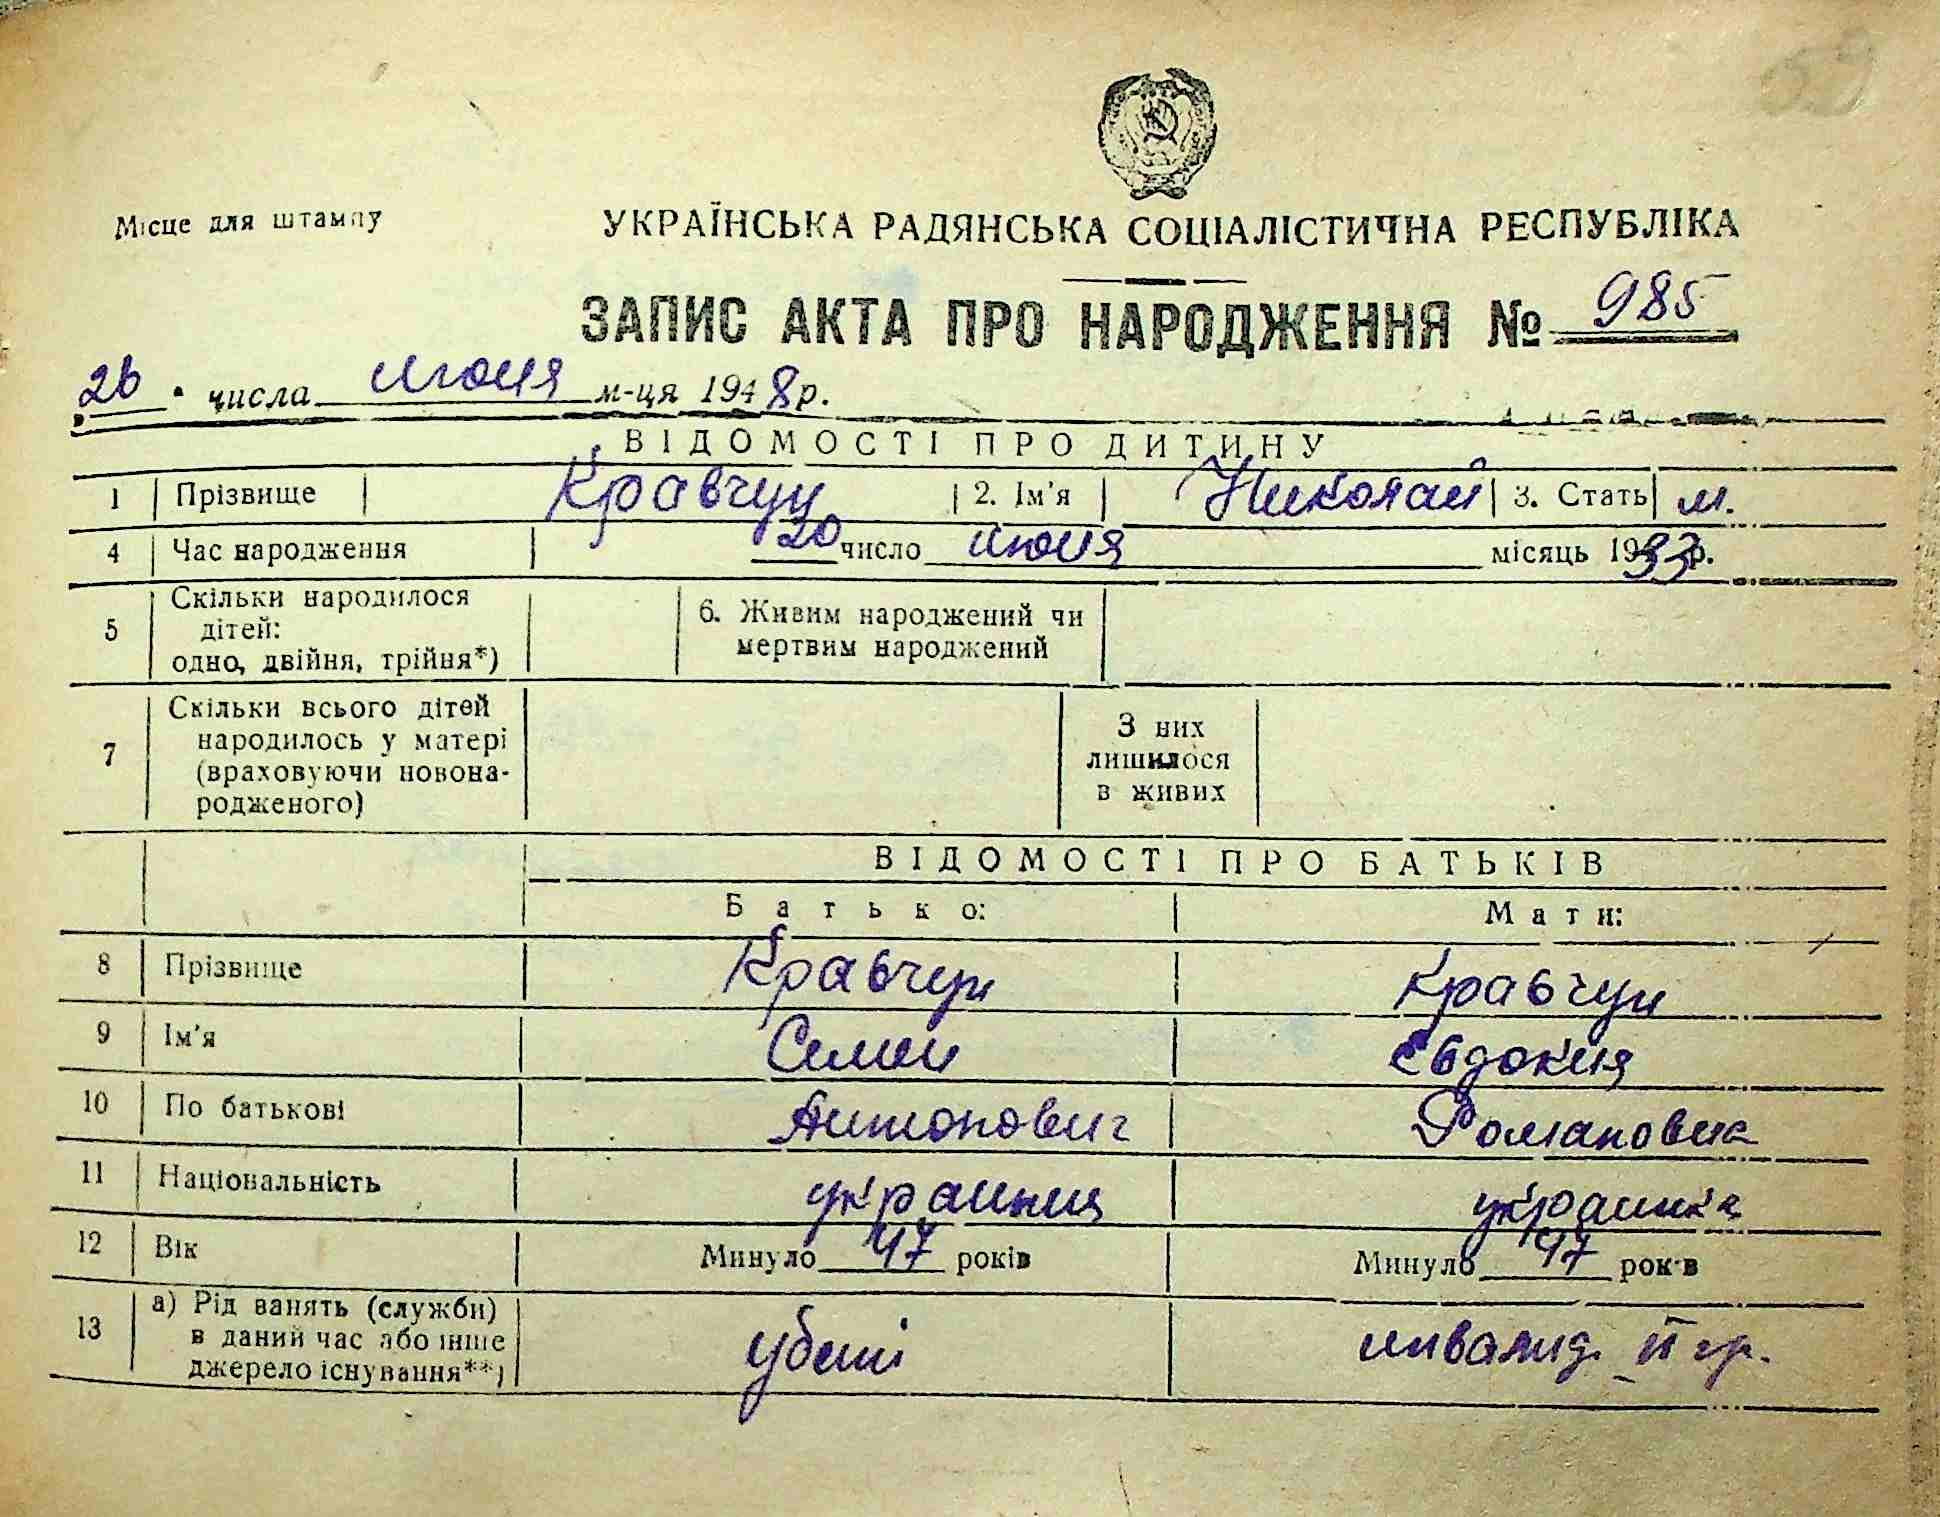 59
Місце для штампу
УКРАЇНСЬКА РАДЯНСЬКА СОЦІАЛІСТИЧНА РЕСПУБЛІКА
ЗАПИС АКТА ПРО НАРОДЖЕННЯ № 985
„26" числа июня м-ця 1948р.
ВІДОМОСТІ ПРО ДИТИНУ
1 Прізвище Кравчун 2. Ім'я Николай 3. Стать м.
4 Час народження 20 число июня місяць 1933р.
5 Скільки народилося
дітей:
одно, двійня, трійня*)
6. Живим народжений чи
мертвим народжений
7 Скільки всього дітей
народилось у матері
(враховуючи новона-
родженого)
З них
лишилося
в живих
ВІДОМОСТІ ПРО БАТЬКІВ
Батько: Мати:
8 Прізвище Кравчун Кравчун
9 Ім'я Семен Евдокия
10 По батькові Антонович Романовна
11 Національність украинец украинка
12 Вік Минуло 47 років Минуло 47 рок·в
13 а) Рід занять (служби)
в даний час або інше
джерело існування**)
убит инвалид II гр.